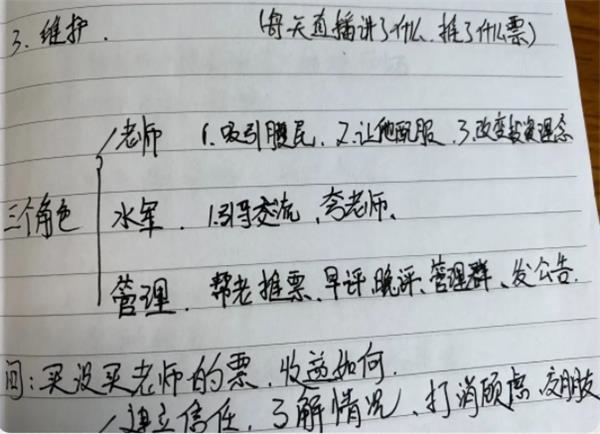 3、维护. (每天直播讲了什么.推了什么票)
老师 1.吸引股民. 2.让他配服. 3.改变投资理念
三个角色
水军. 1.引导交流.夸老师、
管理. 帮老推票、早评.晚评、管理群、发公告.
问:买没买老师的票.收益如何.
建立信任.了解情况、打消顾虑.交朋友